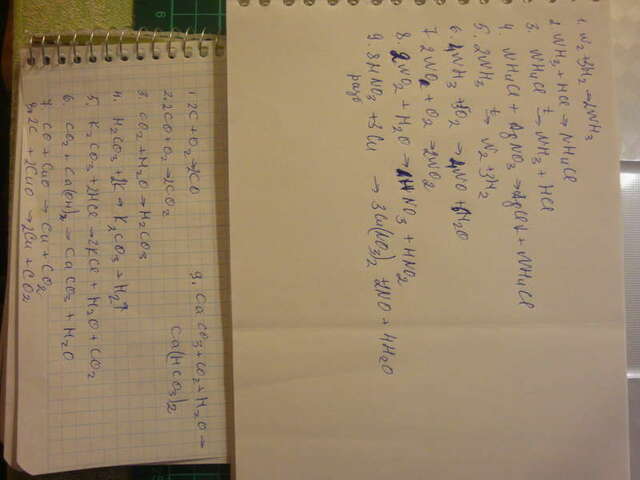 1. N2+3H2 → 2NH3
2 NH3 + HCl → NH4Cl
3. NH4Cl t→ NH3 + HCl
4. NH4Cl + AgNO3 → AgCl↓ + NH4Cl
5. 2NH3 t→ N2+3H2
6. 4NH3 + 5O2 → 4NO + 6H2O
7. 2NO + O2 → 2NO2
8. 2NO2 + H2O → HNO3 + HNO2
9. 8HNO3 + 3Cu → 3Cu(NO3)2 + 2NO + 4H2O
разб
1. 2C + O2 → 2CO
2. 2CO + O2 → 2CO2
3. CO2 + H2O → H2CO3
4. H2CO3 + 2K → K2CO3 + H2↑
5. K2CO3 + 2HCl → 2KCl + H2O + CO2
6. CO2 + Ca(OH)2 → CaCO3 + H2O
7. CO + CuO → Cu + CO2
8. 2C + 2CuO → 2Cu + CO2
9. CaCO3 + CO2 + H2O →
Ca(HCO3)2